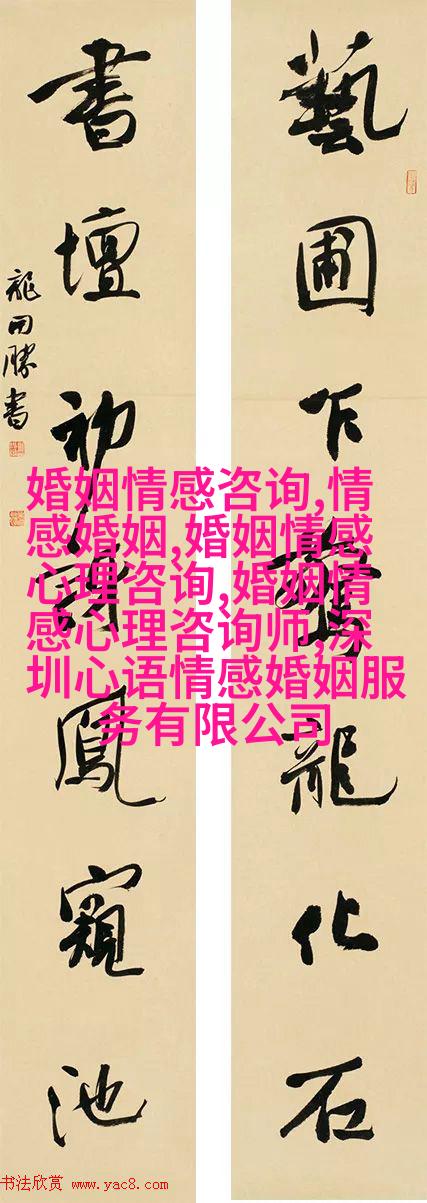 藝圃乍驚龍化石
書壇初訝鳳窺池
龍開勝書
婚姻情感咨询,情
感婚姻,婚姻情感
心理咨询,婚姻情
感心理咨询师,深
圳心语情感婚姻服
务有限公司
书法欣赏 www.yac8.com